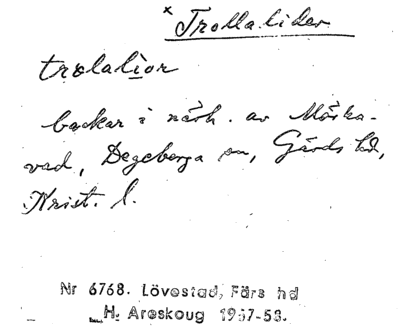 x Trollalider
trolalior
backar i närh. av Mörka-
vad, Degeberga sn, Gärds hd,
Krist. l.
Nr 6768. Lövestad, Färs hd
H. Areskoug 1937-53.